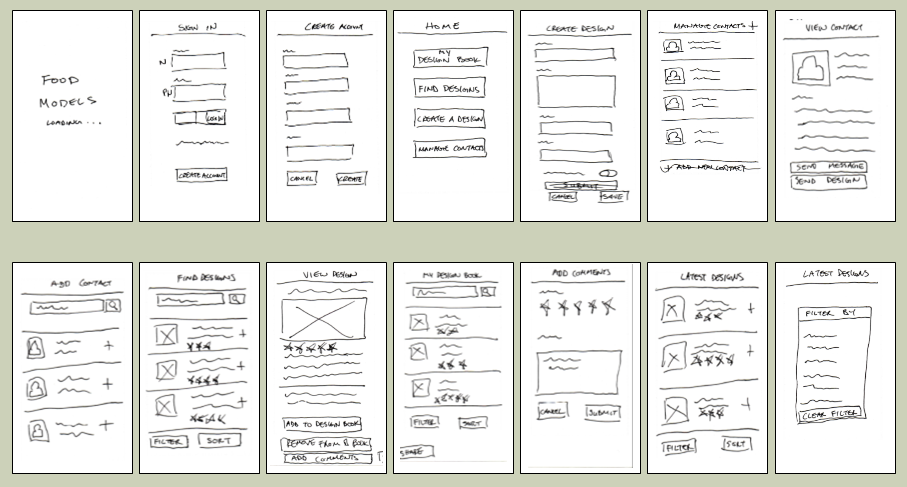 FOOD
MODELS
LOADING...
SIGN IN
N
PW
LOGIN
CREATE ACCOUNT
CREATE ACCOUNT
CANCEL
CREATE
HOME
MY
DESIGN BOOK
FIND DESIGNS
CREATE A DESIGN
MANAGE CONTACTS
CREATE DESIGN
SUBMIT
CANCEL
SAVE
MANAGE CONTACTS +
+ ADD NEW CONTACT
VIEW CONTACT
SEND MESSAGE
SEND DESIGN
ADD CONTACT
+
+
+
FIND DESIGNS
+
+
+
FILTER
SORT
VIEW DESIGN
ADD TO DESIGN BOOK
REMOVE FROM D BOOK
ADD COMMENTS
MY DESIGN BOOK
FILTER
SORT
SHARE
ADD COMMENTS
CANCEL
SUBMIT
LATEST DESIGNS
+
+
FILTER
SORT
LATEST DESIGNS
FILTER BY
CLEAR FILTER